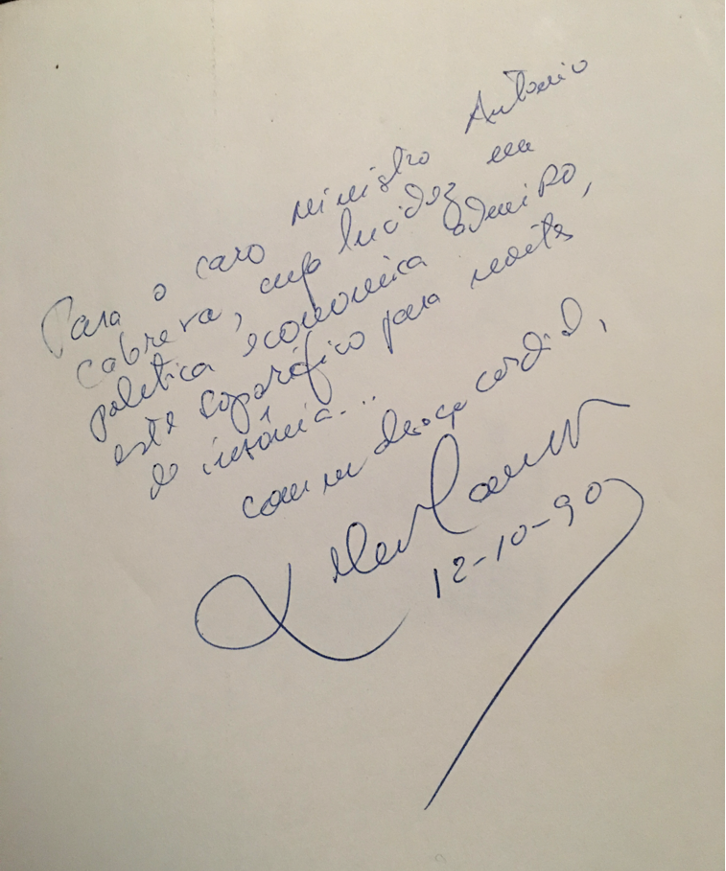 Para o caro ministro Antonio
Cabrera, cuja lucidez em
politica economica admiro,
este soporífico para noites
de insônia...
com um abraço cordial,
12-10-90